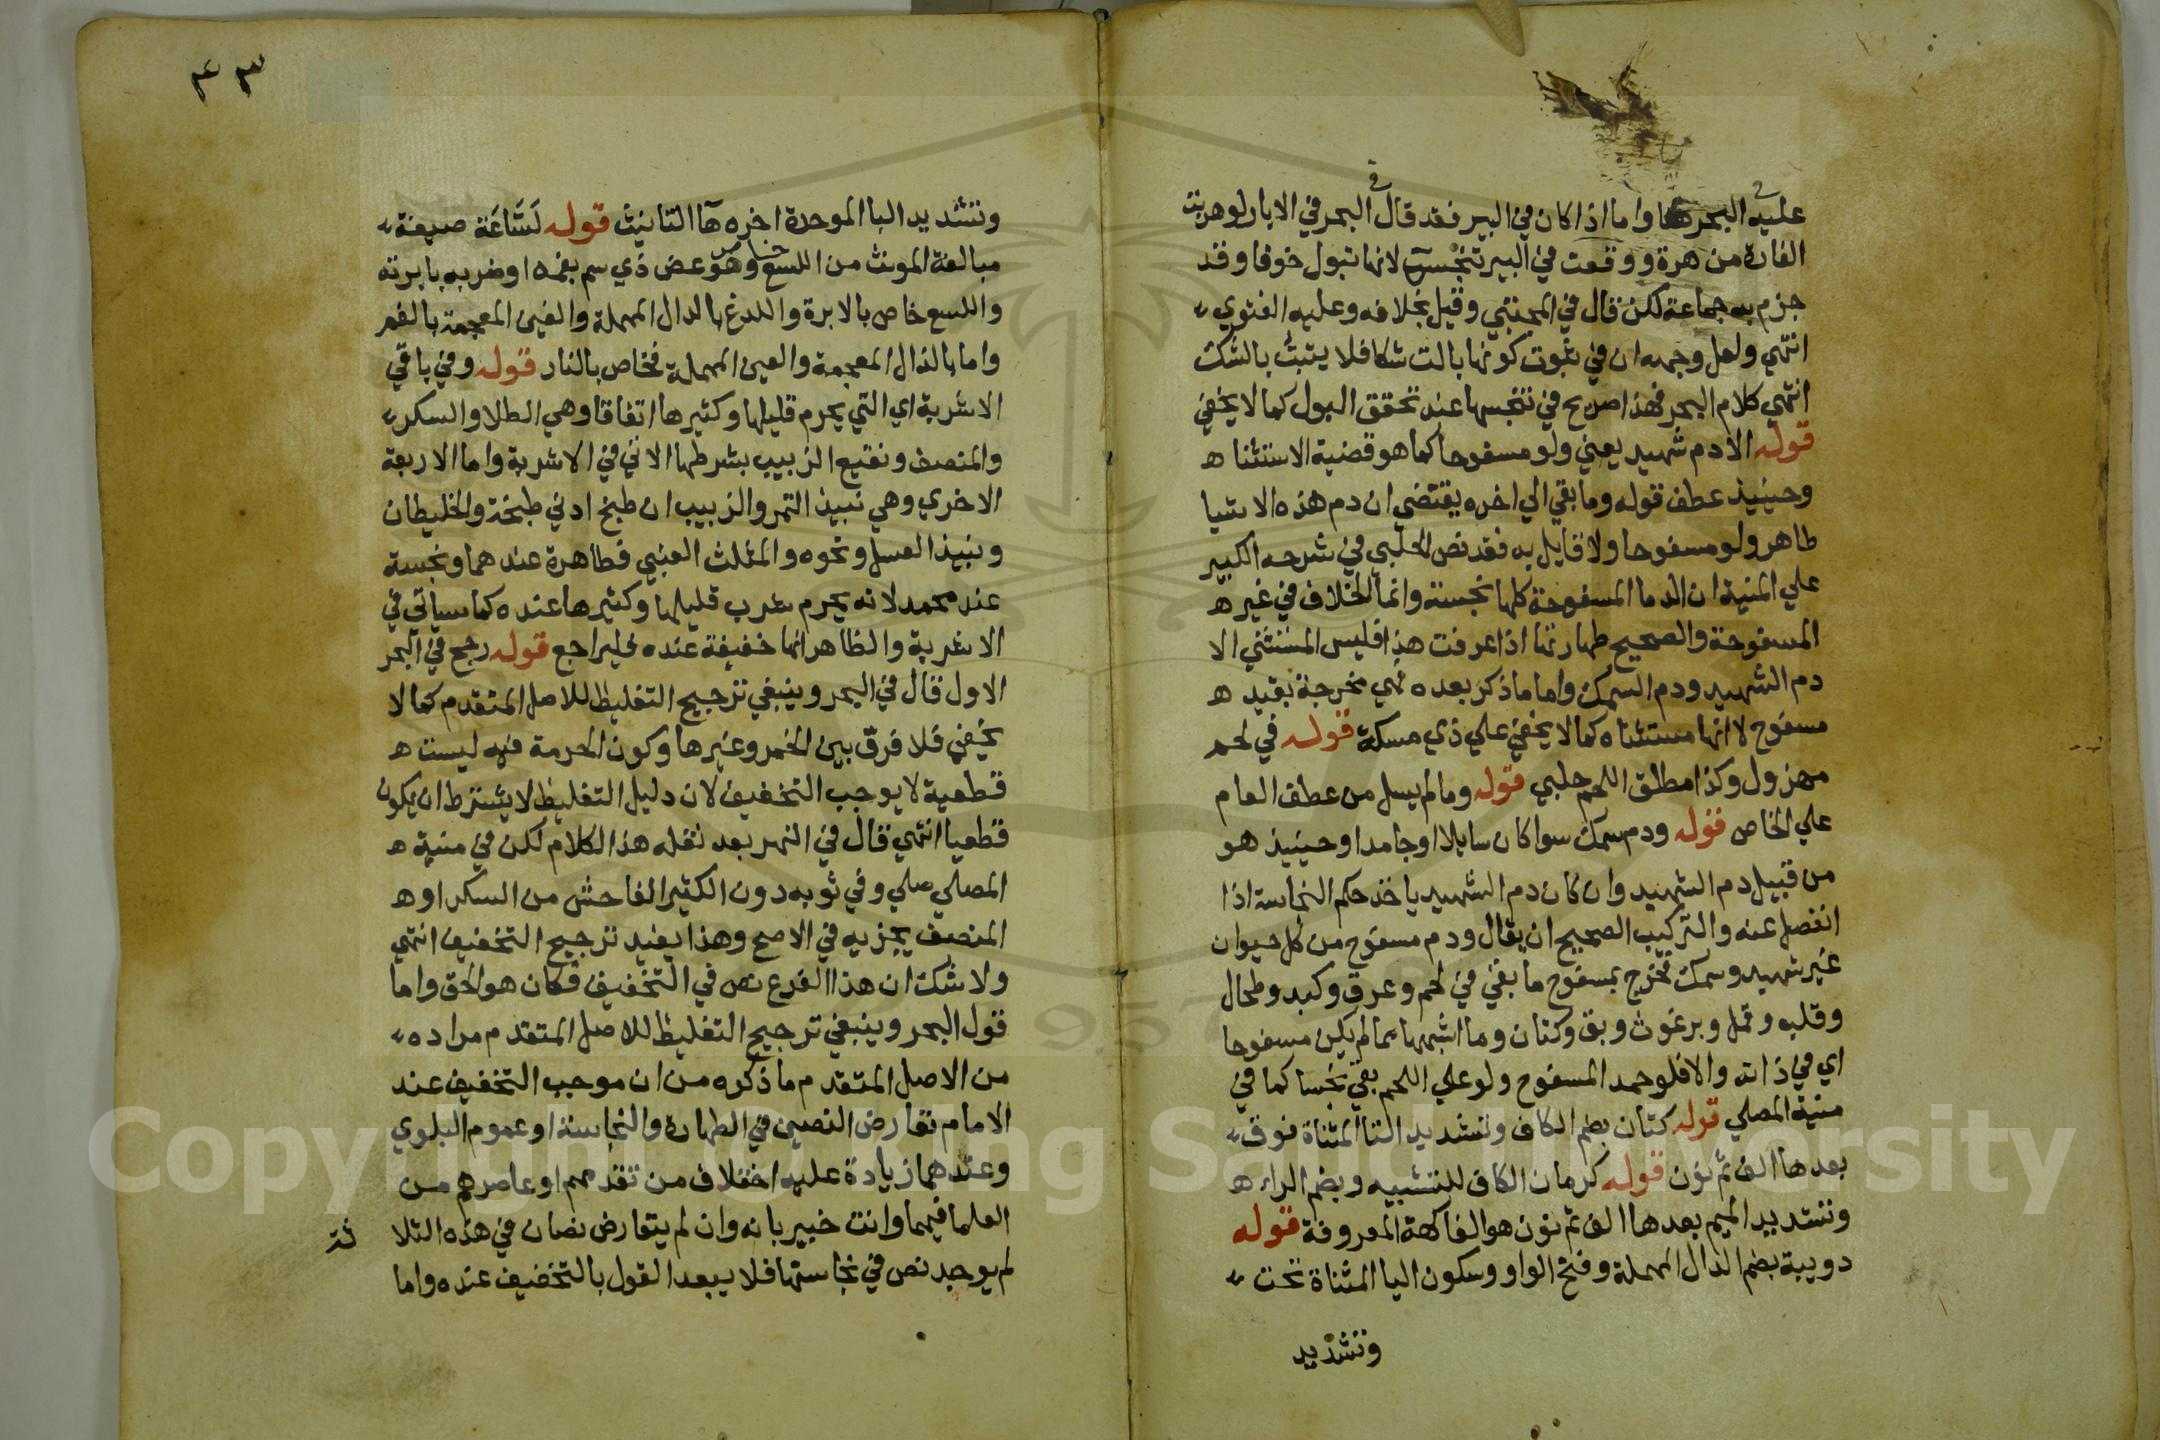 عليه في البحر هنا واما اذا كان في البير فقد قال في البحر في الابار لو هربت
الفارة من هرة ووقعت في البير تنجست لانها تبول خوفا وقد
جزم به جماعة لكن قال في المجتبي وقيل بخلافه وعليه الفتوي
انتهي ولعل وجهه ان في ثبوت كونها بالت شكا فلا يثبت بالشك
انتهي كلام البحر فهذا صريح في تنجسها عند تحقق البول كما لا يخفي
قوله الا دم شهيد يعني ولو مسفوحا كما هو قضية الاستثنا ه
وحينيذ عطف قوله وما بقي الي اخره يقتضي ان دم هذه الاشيا
طاهر ولو مسفوحا ولا قايل به فقد نص الحلبي في شرحه الكبير
علي المنية ان الدما المسفوحة كلها نجسة وانما الخلاف في غير ه
المسفوحة والصحيح طهارتها اذا عرفت هذا فليس المستثني الا
دم الشهيد ودم السمك واما ما ذكر بعده فهي مخرجة بقيد ه
مسفوح لا انها مستثناه كما لا يخفي علي ذي مسكة قوله في لحم
مهزول وكذا مطلق اللحم حلبي قوله وما لم يسل من عطف العام
علي الخاص قوله ودم سمك سوا كان سايلا او جامدا وحينيذ هو
من قبيل دم الشهيد وان كان دم الشهيد ياخذ حكم النجاسة اذا
انفصل عنه والتركيب الصحيح ان يقال ودم مسفوح من كل حيوان
غير شهيد وسمك فخرج بمسفوح ما بقي في لحم وعرق وكبد وطحال
وقلب وقمل وبرغوث وبق وكتان وما اشبهها مما لم يكن مسفوحا
اي في ذاته والا فلو جمد المسفوح ولو علي اللحم بقي نجسا كما في
منية المصلي قوله كتان بضم الكاف وتشديد التا المثناة فوق
بعدها الف ثم نون قوله كرمان الكاف للتشبيه وبضم الراء ه
وتشديد الميم بعدها الف ثم نون هو الفاكهة المعروفة قوله
دويبة بضم الدال المهملة وفتح الواو وسكون اليا المثناة تحت
وتشديد
٤٣
وتشديد البا الموحدة اخره ها التانيث قوله لَسَّاعَة صيغة
مبالغة المونث من اللسع وهو عض ذي سم بفمه او ضربه بابرته
واللسع خاص بالابرة واللدغ بالدال المهملة والغين المعجمة بالفم
واما بالذال المعجمة والعين المهملة فخاص بالنار قوله وفي باقي
الاشربة اي التي يحرم قليلها وكثيرها اتفاقا وهي الطلا والسكر
والمنصف ونقيع الزبيب بشرطها الاتي في الاشربة واما الاربعة
الاخري وهي نبيذ التمر والزبيب ان طبخ ادني طبخة والخليطان
ونبيذ العسل ونحوه والمثلث العنبي فطاهرة عندهما ونجسة
عند محمد لانه يحرم شرب قليلها وكثيرها عنده كما سياتي في
الاشربة والظاهر انها خفيفة عنده فليراجع قوله رجح في البحر
الاول قال في البحر وينبغي ترجيح التغليظ للاصل المتقدم كما لا
يخفي فلا فرق بين الخمر وغيرها وكون الحرمة فيه ليست ه
قطعية لا يوجب التخفيف لان دليل التغليظ لا يشترط ان يكون
قطعيا انتهي قال في النهر بعد نقله هذا الكلام لكن في منية ه
المصلي صلي وفي ثوبه دون الكثير الفاحش من السكر او ه
المنصف يجزيه في الاصح وهذا يفيد ترجيح التخفيف انتهي
ولا شك ان هذا الفرع نص في التخفيف فكان هو الحق واما
قول البحر وينبغي ترجيح التغليظ للاصل المتقدم مراده
من الاصل المتقدم ما ذكره من ان موجب التخفيف عند
الامام تعارض النصين في الطهارة والنجاسة او عموم البلوي
وعندهما زيادة عليه اختلاف من تقدمهم او عاصرهم من
العلما فيهما وانت خبير بانه وان لم يتعارض نصان في هذه الثلا ثة
لم يوجد نص في نجاستها فلا يبعد القول بالتخفيف عنده واما
Copyright © King Saud University